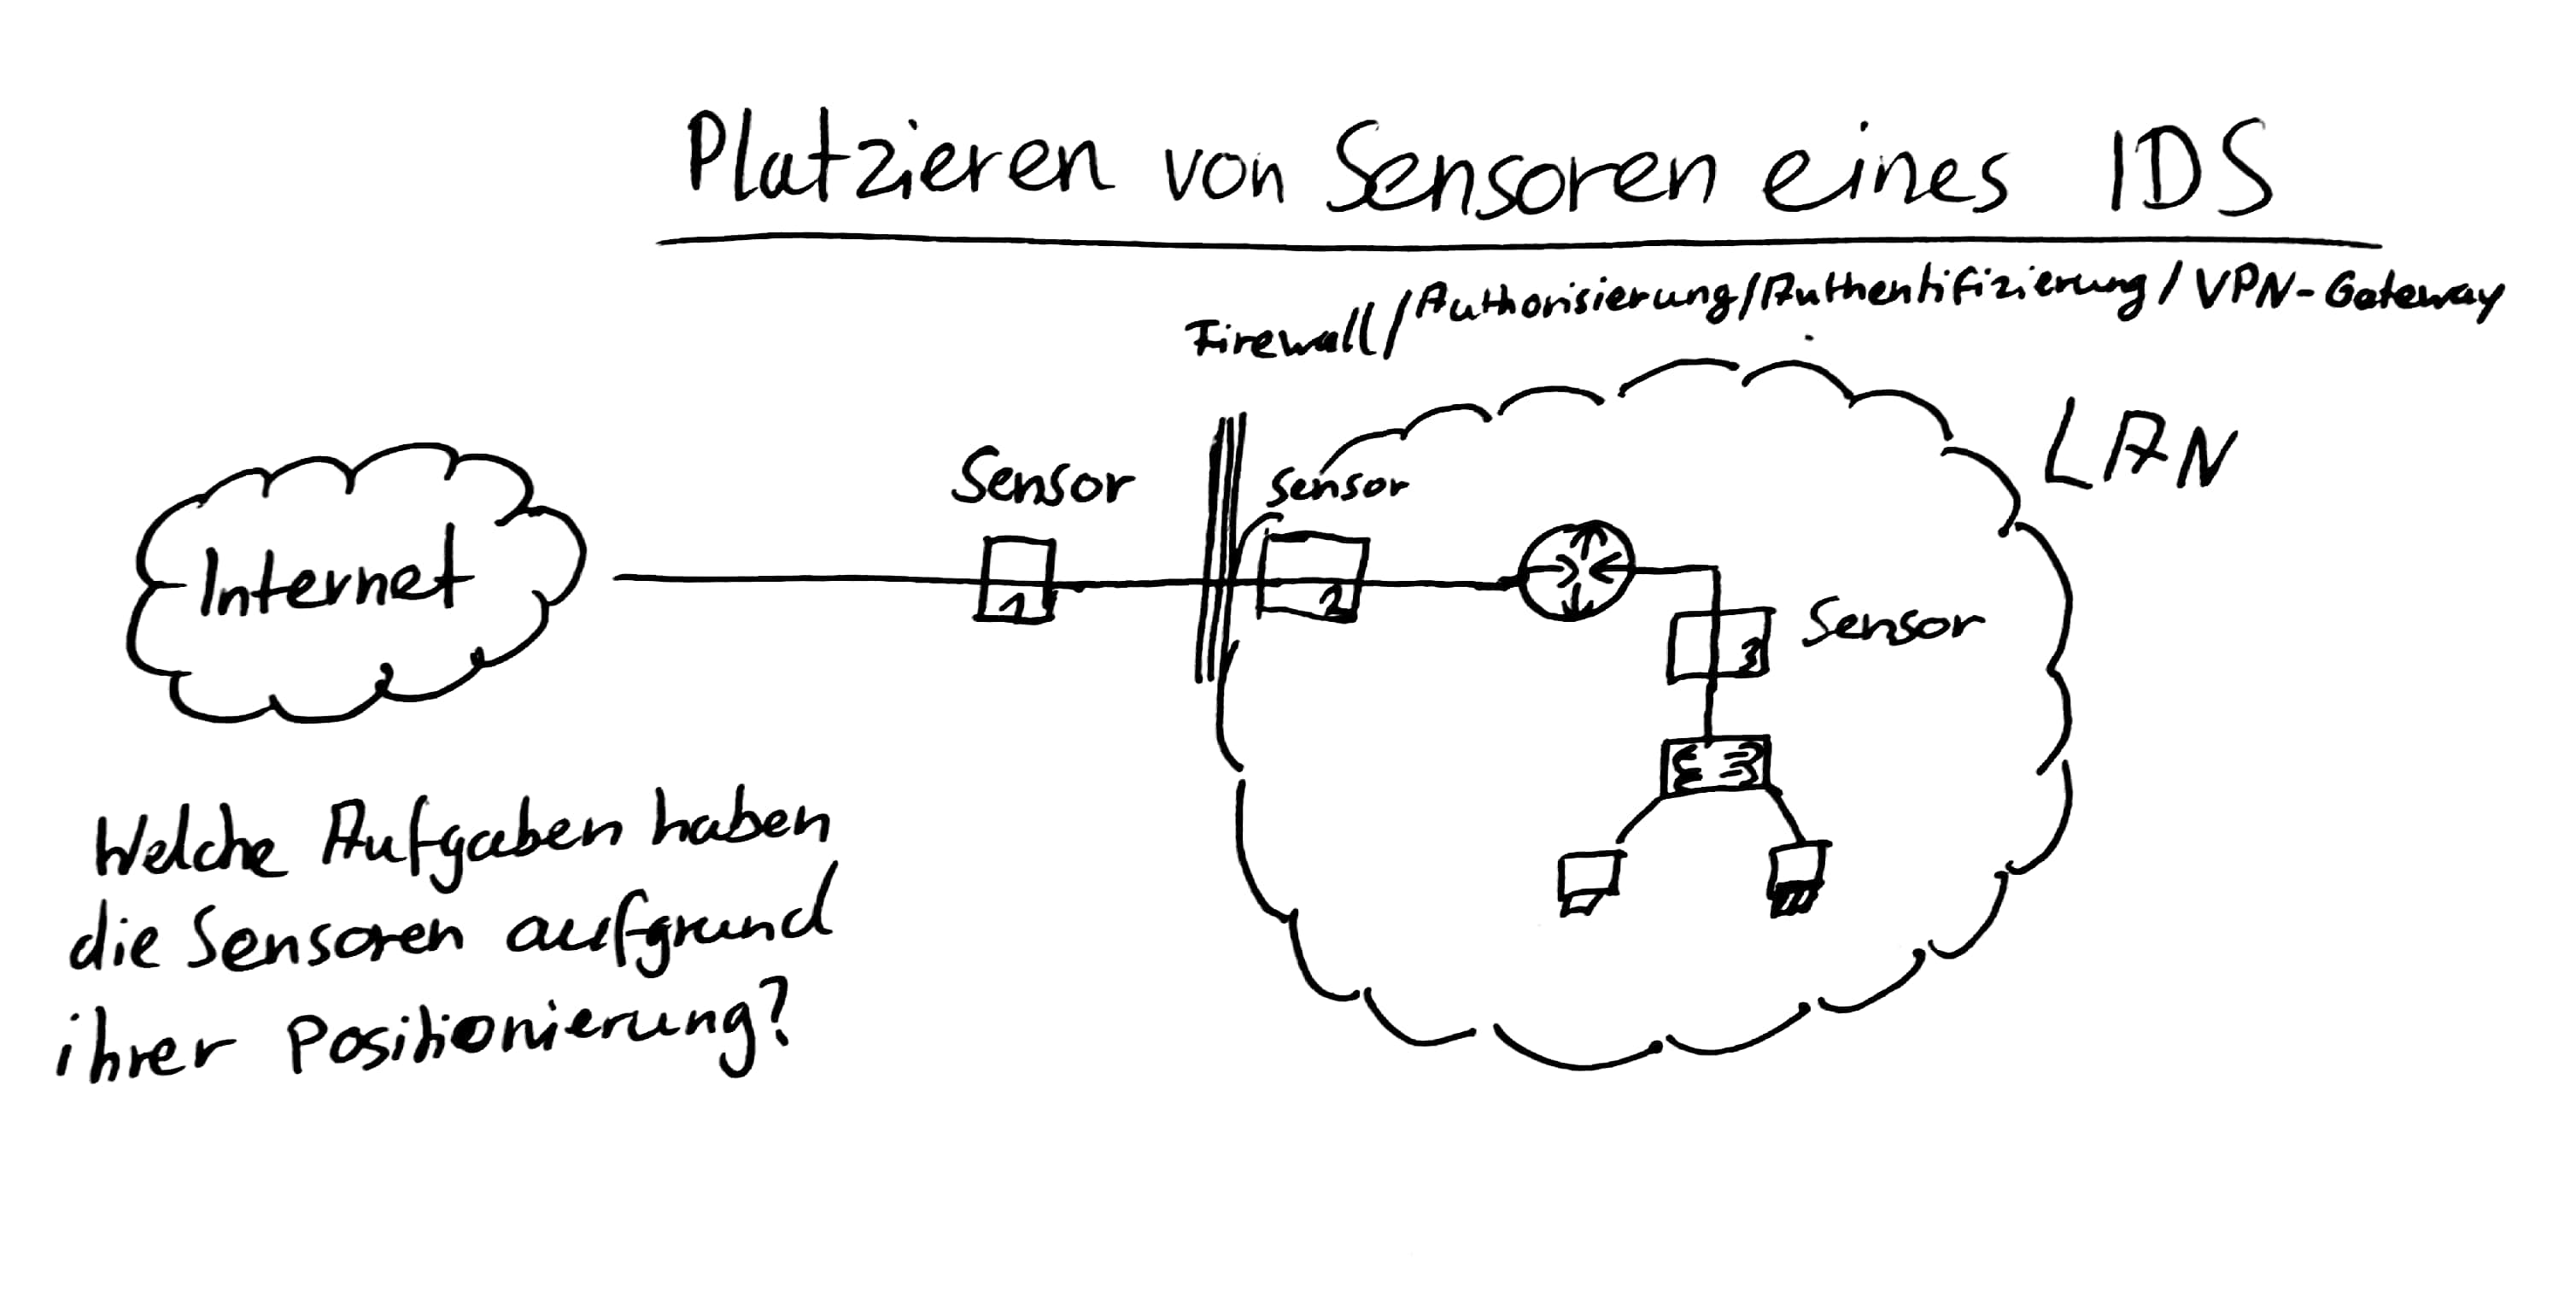 Platzieren von Sensoren eines IDS
Firewall/Authorisierung/Authentifizierung/VPN-Gateway
LAN
Sensor
Sensor
Internet
1
2
Sensor
3
Welche Aufgaben haben
die Sensoren aufgrund
ihrer Positionierung?